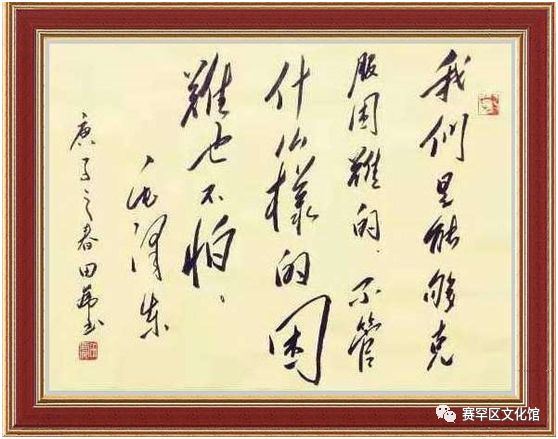 我們是能够克
服困難的.不管
什么樣的困
難也不怕、
毛澤东
庚子之春田书
赛罕区文化馆